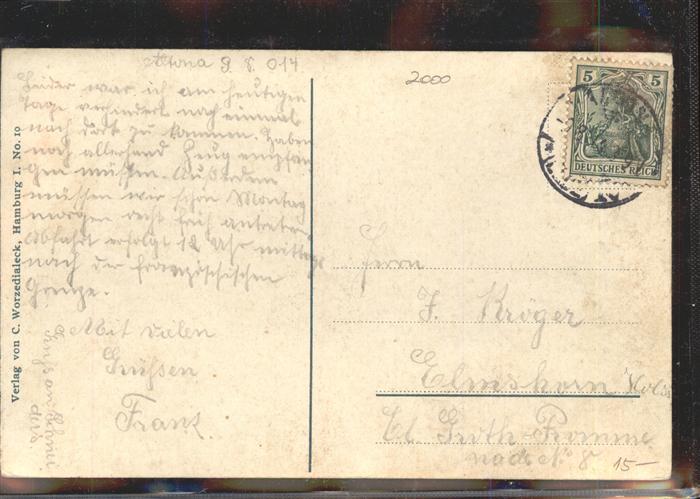 Altona 9. 8. 014
Leider war ich am heutigen
Tage verhindert noch einmal
nach dort zu kommen. Haben
noch allerhand Zeug empfan
gen müssen. Außerdem
müssen wir schon Montag
morgen recht früh antreten.
Abfahrt erfolgt 12 Uhr mittags
nach der französischen
Grenze.
Mit vielen
Grüssen
Franz.
Gruß an
Verlag von C. Worzedialeck, Hamburg I. No. 10
2000
5 5
DEUTSCHES REICH
Herrn
J. Kröger
Elmshorn Holst
Kl. Groth-Promme
nade No 8
15—